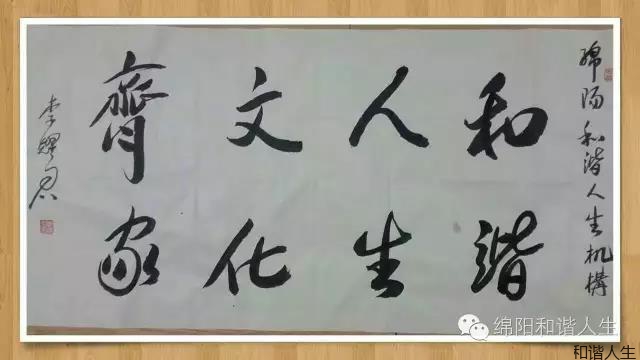 绵陽和谐人生机構
和谐
人生
文化
齊家
李耀君
绵阳和谐人生
和谐人生